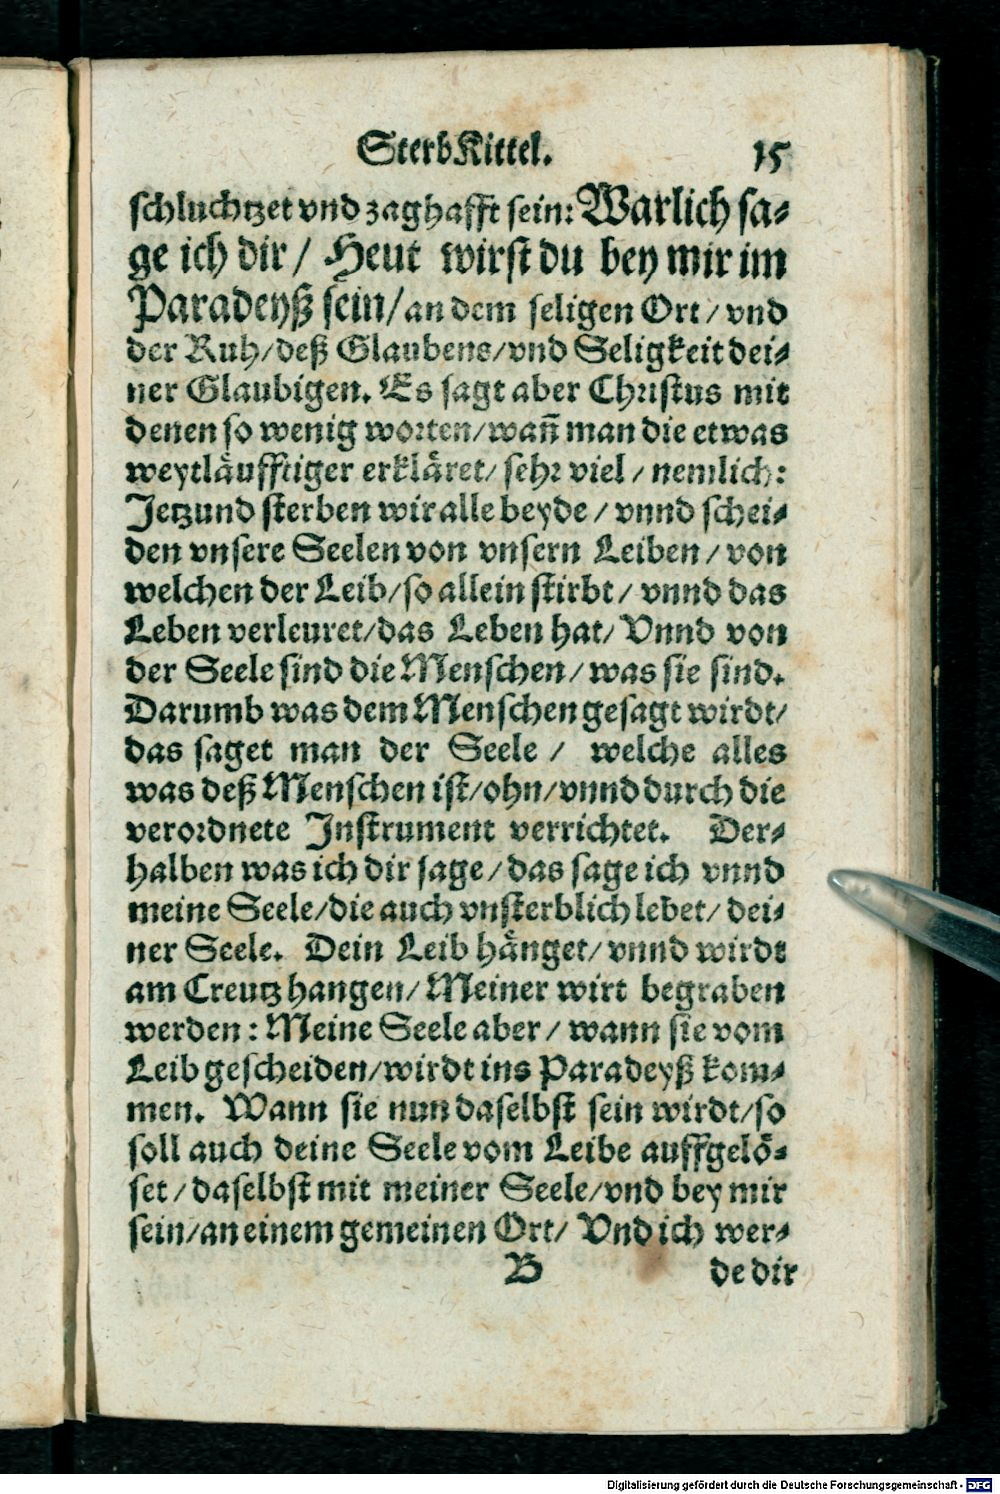 SterbKittel. 15
schluchtzet vnd zaghafft sein: Warlich sa-
ge ich dir / Heut wirst du bey mir im
Paradeyß sein / an dem seligen Ort / vnd
der Ruh / deß Glaubens / vnd Seligkeit dei-
ner Glaubigen. Es sagt aber Christus mit
denen so wenig worten / wañ man die etwas
weytläufftiger erkläret / sehr viel / nemlich:
Jetzund sterben wir alle beyde / vnnd schei-
den vnsere Seelen von vnsern Leiben / von
welchen der Leib / so allein stirbt / vnnd das
Leben verleuret / das Leben hat / Vnnd von
der Seele sind die Menschen / was sie sind.
Darumb was dem Menschen gesagt wirdt /
das saget man der Seele / welche alles
was deß Menschen ist / ohn / vnnd durch die
verordnete Instrument verrichtet. Der-
halben was ich dir sage / das sage ich vnnd
meine Seele / die auch vnsterblich lebet / dei-
ner Seele. Dein Leib hänget / vnnd wirdt
am Creutz hangen / Meiner wirt begraben
werden: Meine Seele aber / wann sie vom
Leib gescheiden / wirdt ins Paradeyß kom-
men. Wann sie nun daselbst sein wirdt / so
soll auch deine Seele vom Leibe auffgelö-
set / daselbst mit meiner Seele / vnd bey mir
sein / an einem gemeinen Ort / Vnd ich wer-
B de dir
Digitalisierung gefördert durch die Deutsche Forschungsgemeinschaft - DFG